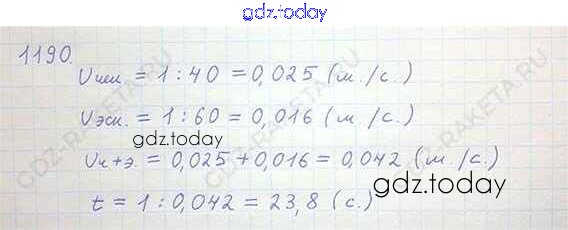 gdz.today
1190.
Vчел. = 1 : 40 = 0,025 (м./с.)
Vэск. = 1 : 60 = 0,016 (м./с.)
gdz.today
Vч+э. = 0,025 + 0,016 = 0,042 (м./с.)
gdz.today
t = 1 : 0,042 = 23,8 (с.)
GDZ-RAKETA.RU
GDZ-RAKETA.RU